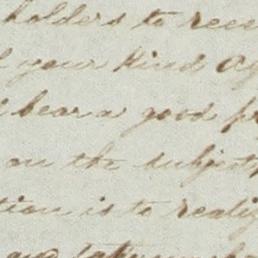 holders to rece
your kind
bears a good
on the subject
tion is to realiz